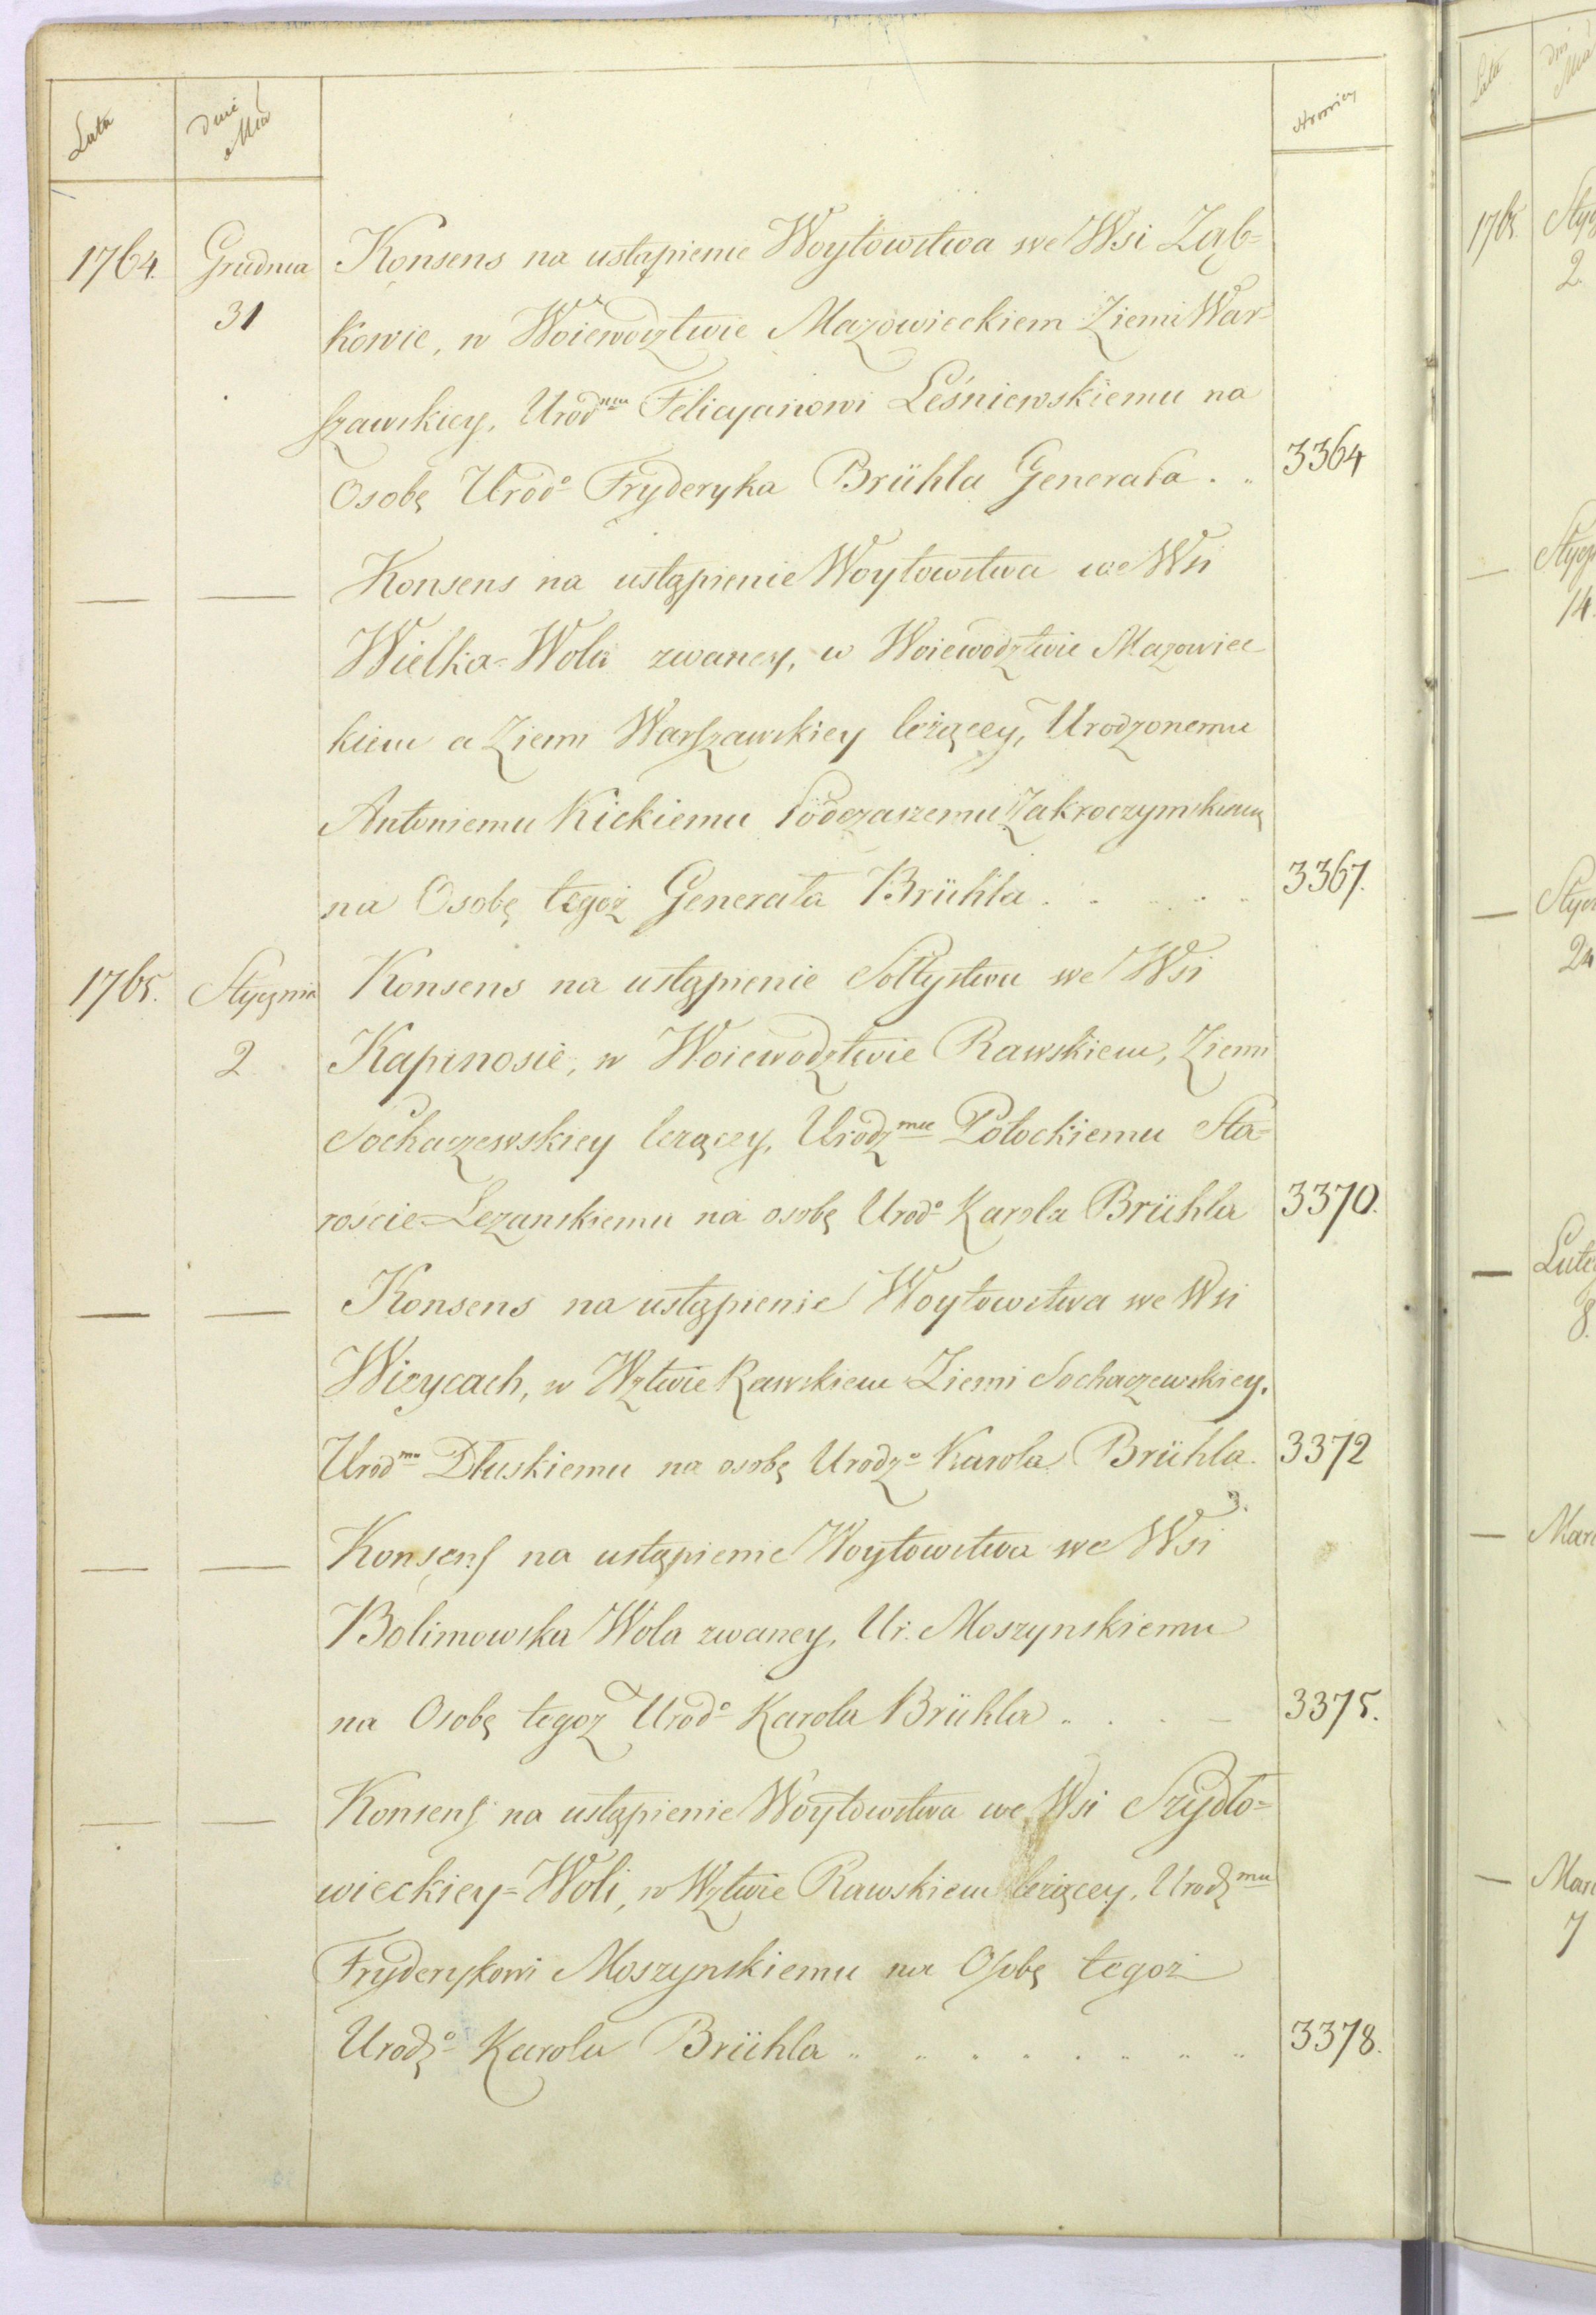 Lata
Dnie
Mca
Stronicy
1764. Grudnia Konsens na ustąpienie Woytowstwa we Wsi Ząb=
31 kowie, w Woiewodztwie Mazowieckiem Ziemi War-
szawskiey, Urodnmu Felicyanowi Leśniewskiemu na
Osobę Urodo Fryderyka Brühla Generała . . 3364
— — Konsens na ustąpienie Woytowstwa we Wsi
Wielka=Wola zwaney, w Woiewodztwie Mazowiec
kiem a Ziemi Warszawskiey leżącey, Urodzonemu
Antoniemu Kickiemu Podczaszemu Zakroczymskiemu
na Osobę tegoż Generała Brühla . . . . . 3367.
1765. Stycznia Konsens na ustąpienie Sołtystwa we Wsi
2 Kapinosie, w Woiewodztwie Rawskiem, Ziemi
Sochaczewskiey leżącey, Urodzmu Potockiemu Sta=
roscie=Lezanskiemu na osobę Urodo Karola Brühla 3370.
— — Konsens na ustąpienie Woytowstwa we Wsi
Wizycach, w Wztwie Rawskiem Ziemi Sochaczewskiey.
Urodmu Dłuskiemu na osobę Urodzo Karola Brühla. 3372
— — Konsens na ustąpienie Woytowstwa we Wsi
Bolimowska Wola zwaney, Ur. Moszynskiemu
na Osobę tegoz Urodo Karola Brühla . . . — 3375.
— — Konsens na ustąpienie Woytowstwa we Wsi Szydło=
wieckiey=Woli, w Wztwie Rawskiem leżącey, Urodzmu
Fryderykowi Moszynskiemu na Osobę tegoż
Urodzo Karola Brühla . . . . . . . . 3378.
Lata
dni
1765.
2.
—
14.
—
24
—
8.
—
—
7